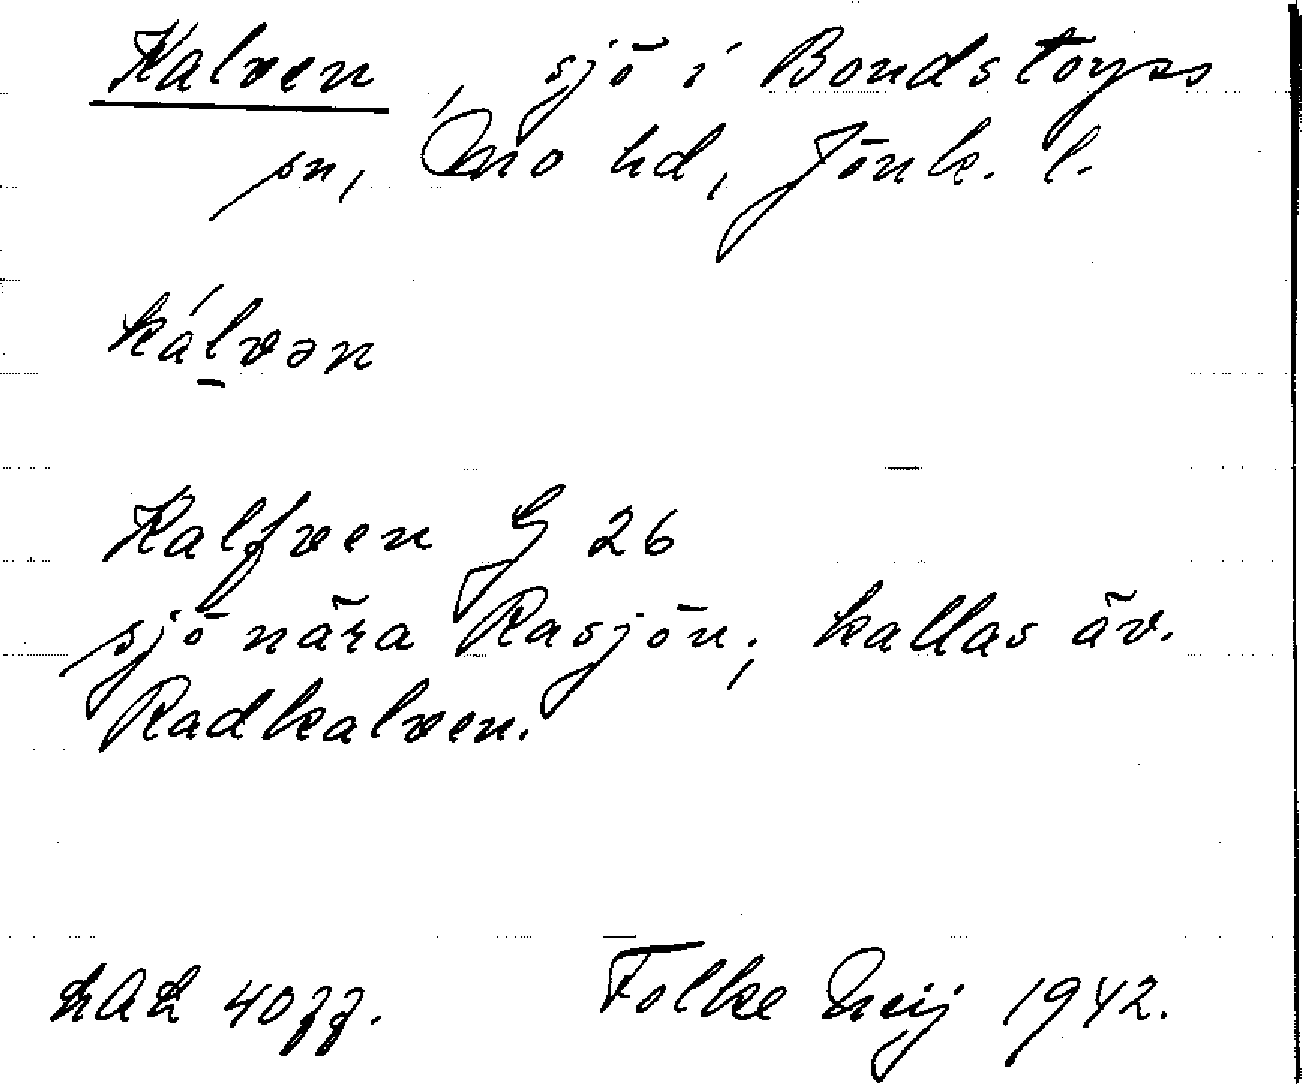 Kalven, sjö i Bondstorps
sn, Mo hd, Jönk. l.
kál̠vən
Kalfven G 26
sjö nära Rasjön; kallas äv.
Radkalven.
LAL 4077.
Folke Neij 1942.